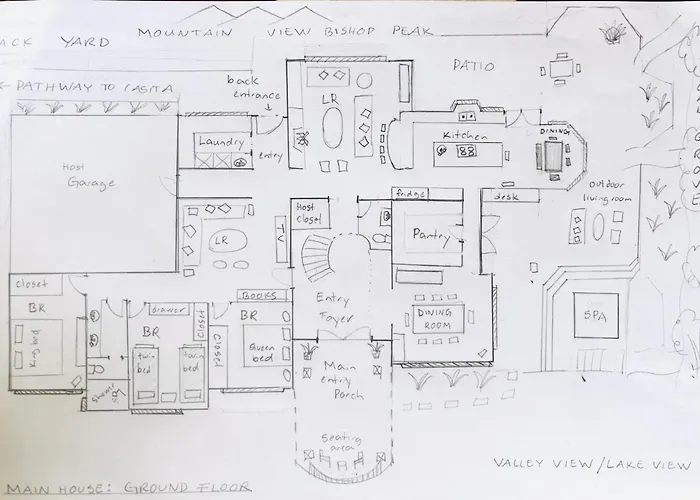 ACK YARD
MOUNTAIN VIEW BISHOP PEAK
← PATHWAY TO CASITA
back
entrance
PATIO
LR
Laundry
entry
Kitchen
DINING
Host
Garage
fridge
desk
Outdoor
living room
Host
Closet
Pantry
LR
TV
closet
BR
King bed
BOOKS
drawer
BR
closet
twin
bed
twin
bed
BR
closet
Queen
bed
shower
Entry
Foyer
DINING
ROOM
SPA
Main
entry
Porch
Seating
area
VALLEY VIEW / LAKE VIEW
MAIN HOUSE: GROUND FLOOR